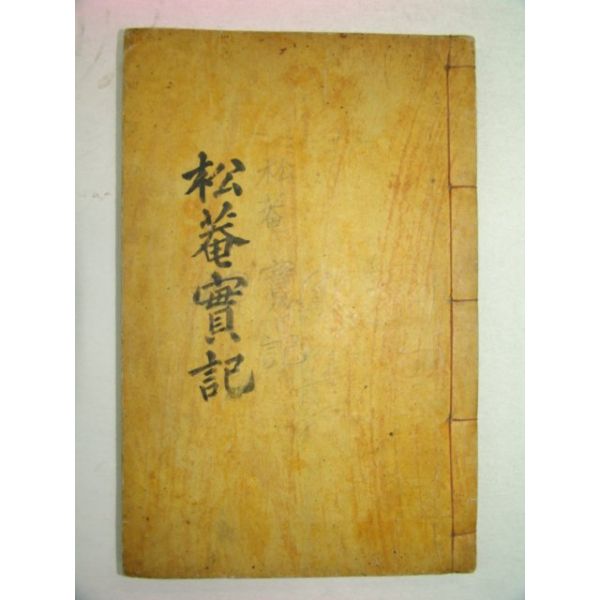 松菴實記
松菴實記